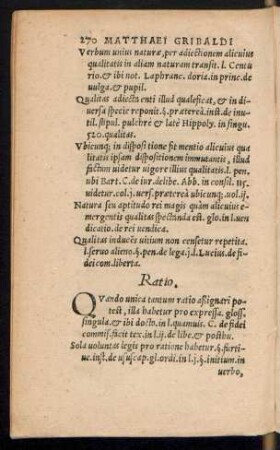 270 MATTHAEI GRIBALDI
Verbum unius naturæ, per adiectionem alicuius
qualitatis in aliam naturam transit. l. Centu
rio. & ibi not. Laphranc. doria. in princ. de
uulga. & pupil.
Qualitas adiecta enti illud qualeficat, & in di-
uersa specie reponit. §. præterea. inst. de inu-
til. stipul. pulchrè & latè Hippoly. in singu.
520. qualitas.
Vbicunq; in dispositione fit mentio alicuius qua
litatis ipsam dispositionem immutantis, illud
factum uidetur uigore illius qualitatis. l. pen.
ubi Bart. C. de iur. delibe. Abb. in consil. 115.
uidetur. col. j. uers. præterea ubicunq;. uol. ij.
Natura seu aptitudo rei magis quàm alicuius e-
mergentis qualitas spectanda est. glo. in l. uen
dicatio. de rei uendica.
Qualitas inducēs uitium non censetur repetita.
l. seruo alieno. §. pen. de lega. j. d. Lucius. de fi-
dei com. liberta.
Ratio.
QVando unica tantum ratio assignari po-
test, illa habetur pro expressa. gloss.
singula. & ibi docto. in l. quamuis. C. de fidei
commiss. facit tex. in l. ij. de libe. & posthu.
Sola uoluntas legis pro ratione habetur. §. furti-
uæ. inst. de usucap. gl. ordi. in l. j. §. initium. in
uerbo,